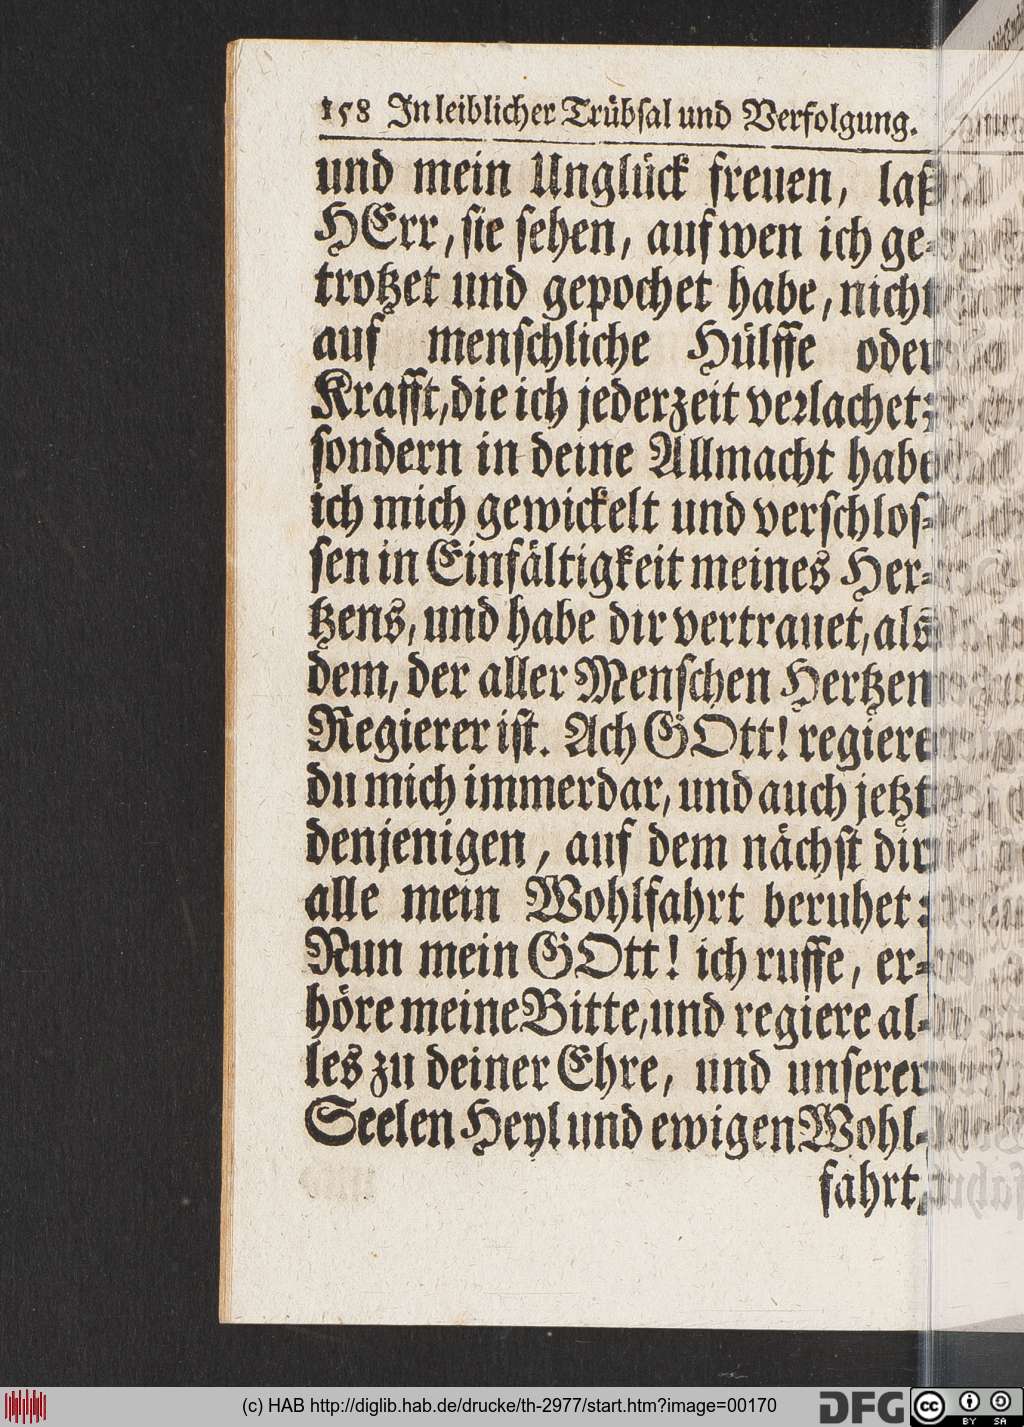 158 In leiblicher Trübsal und Verfolgung.
und mein Unglück freuen, laß
HErr, sie sehen, auf wen ich ge-
trotzet und gepochet habe, nicht
auf menschliche Hülffe oder
Krafft, die ich jederzeit verlachet;
sondern in deine Allmacht habe
ich mich gewickelt und verschlos-
sen in Einfältigkeit meines Her-
tzens, und habe dir vertrauet, als
dem, der aller Menschen Hertzen
Regierer ist. Ach GOtt! regiere
du mich immerdar, und auch jetzt
denjenigen, auf dem nächst dir
alle mein Wohlfahrt beruhet:
Nun mein GOtt! ich ruffe, er-
höre meine Bitte, und regiere al-
les zu deiner Ehre, und unserer
Seelen Heyl und ewigen Wohl-
fahrt,
(c) HAB http://diglib.hab.de/drucke/th-2977/start.htm?image=00170
DFG
cc BY SA